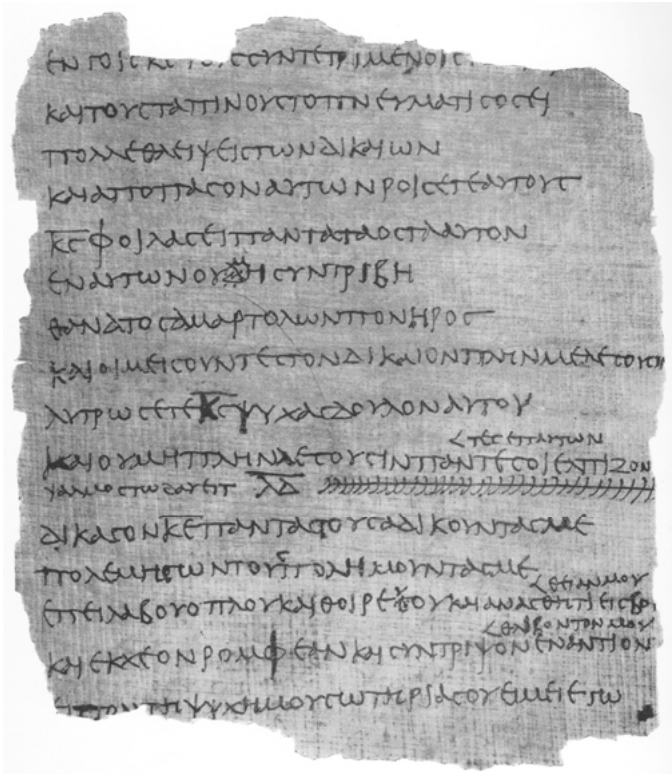 ϹΥΝΤΕΤΡΙΜΕΝΟΙϹ
ΚΑΙΤΟΥϹΤΑΠΙΝΟΥϹΤΟΠΝΕΥΜΑΤΙϹΟϹΕΙ
ΠΟΛΛΕΘΛΕΙΨΕΙϹΤΩΝΔΙΚΑΙΩΝ
ΚΑΙΑΠΟΠΑϹΟΝΑΥΤΩΝΡΟΙϹΕΤΕΑΥΤΟΥϹ
Κ̅Ϲ̅ΦΟΙΛΑϹΕΙΠΑΝΤΑΤΑΟϹΤΑΑΥΤΟΝ
ΕΝΑΥΤΩΝΟΥΔΗϹΥΝΤΡΙΒΗ
ΘΑΝΑΤΟϹΑΜΑΡΤΟΛΩΝΠΟΝΗΡΟϹ
ΚΑΙΟΙΜΕΙϹΟΥΝΤΕϹΤΟΝΔΙΚΑΙΟΝΠΛΗΝΜΕΛΕΤΟΥϹΙΝ
ΛΥΤΡΩϹΕΤΕΚ̅Ϲ̅ΨΥΧΑϹΔΟΥΛΟΝΑΥΤΟΥ
<ΤΕϹΕΠΑΥΤΩΝ
ΚΑΙΟΥΜΗΠΛΗΝΛΕΤΟΥϹΙΝΠΑΝΤΕϹΟΙΕΛΠΙΖΟΝ
ΨΑΛΜΟϹΤΩΔΑΥΕΙΤ Λ̅Δ̅
ΔΙΚΑϹΟΝΚ̅Ε̅ΠΑΝΤΑϹΤΟΥϹΑΔΙΚΟΥΝΤΑϹΜΕ
ΠΟΛΕΜΗϹΩΝΤΟΥϹΠΟΛΗΜΟΥΝΤΑϹΜΕ
<ΘΕΙΑΝΜΟΥ
ΕΠΕΙΛΑΒΟΥΟΠΛΟΥΚΑΙΘΟΙΡΕΟΥΚΑΙΑΝΑϹΘΗΤΙΕΙϹΒΟΙ
<ΘΛΙΒΟΝΤΟΝΜΟΥ
ΚΑΙΕΚΧΕΟΝΡΟΜΦΕΑΝΚΑΙϹΥΝΤΡΙΨΟΝΕΝΑΝΤΙΟΝ
ΕΙΠΟΝΤΗΨΥΧΗΜΟΥϹΩΤΗΡΙΑϹΟΥΕΙΜΕΙΕΓΩ